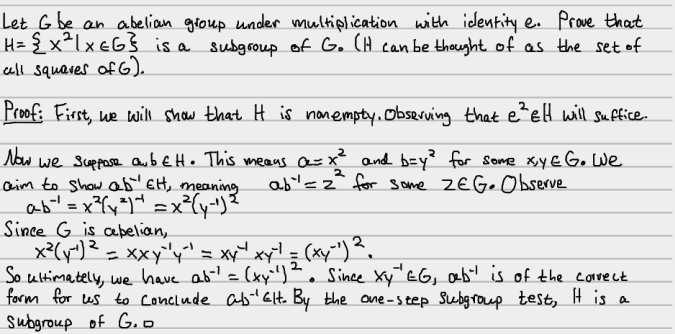 Let G be an abelian group under multiplication with identity e. Prove that
H = { x² | x ∈ G } is a subgroup of G. (H can be thought of as the set of
all squares of G).
Proof: First, we will show that H is nonempty. Observing that e² ∈ H will suffice.
Now we suppose a, b ∈ H. This means a = x² and b = y² for some x, y ∈ G. We
aim to show ab⁻¹ ∈ H, meaning ab⁻¹ = z² for some z ∈ G. Observe
ab⁻¹ = x²(y²)⁻¹ = x²(y⁻¹)²
Since G is abelian,
x²(y⁻¹)² = xxy⁻¹y⁻¹ = xy⁻¹xy⁻¹ = (xy⁻¹)².
So ultimately, we have ab⁻¹ = (xy⁻¹)². Since xy⁻¹ ∈ G, ab⁻¹ is of the correct
form for us to conclude ab⁻¹ ∈ H. By the one-step subgroup test, H is a
subgroup of G. □